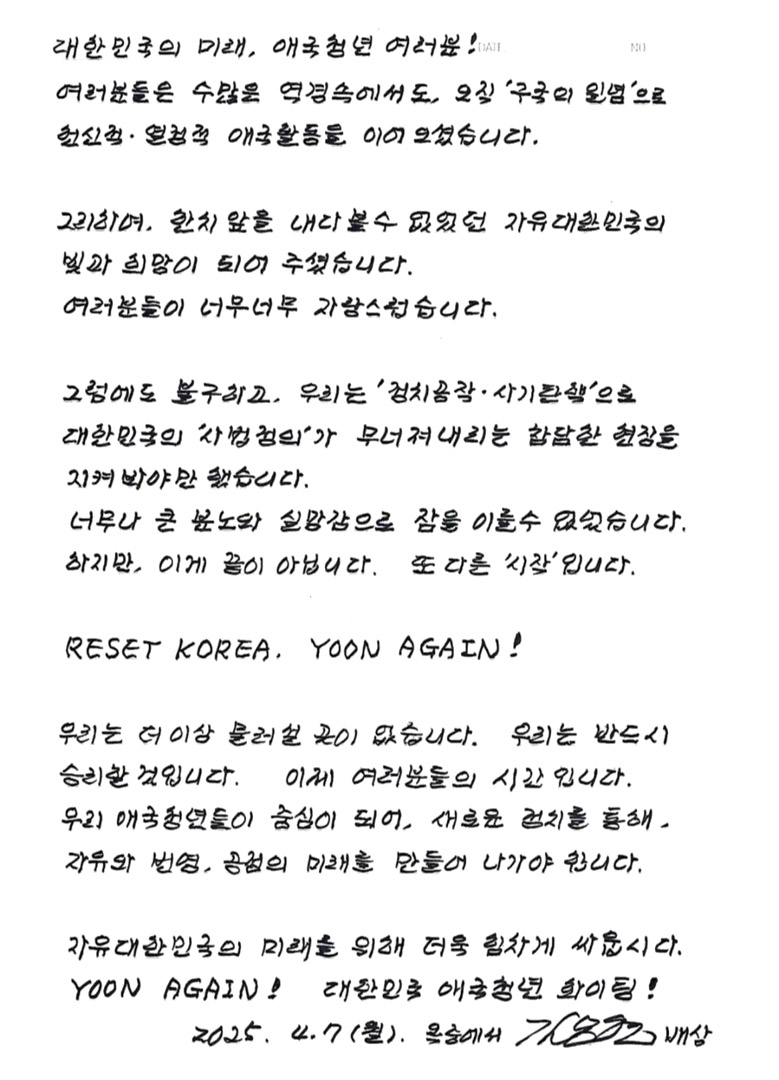 대한민국의 미래, 애국청년 여러분! DATE. NO
여러분들은 수많은 역경속에서도, 오직 '구국의 일념'으로
헌신적·열정적 애국활동을 이어 오셨습니다.
그리하여, 한치 앞을 내다 볼수 없었던 자유대한민국의
빛과 희망이 되어 주셨습니다.
여러분들이 너무너무 자랑스럽습니다.
그럼에도 불구하고, 우리는 '정치공작·사기탄핵'으로
대한민국의 '사법정의'가 무너져내리는 참담한 현장을
지켜 봐야만 했습니다.
너무나 큰 분노와 실망감으로 잠을 이룰수 없었습니다.
하지만, 이게 끝이 아닙니다. 또 다른 '시작'입니다.
RESET KOREA. YOON AGAIN!
우리는 더 이상 물러설 곳이 없습니다. 우리는 반드시
승리할 것입니다. 이제 여러분들의 시간 입니다.
우리 애국청년들이 중심이 되어, 새로운 정치를 통해,
자유와 번영, 공정의 미래를 만들어 나가야 합니다.
자유대한민국의 미래를 위해 더욱 힘차게 싸웁시다.
YOON AGAIN! 대한민국 애국청년 화이팅!
2025. 4.7(월). 옥중에서 배상